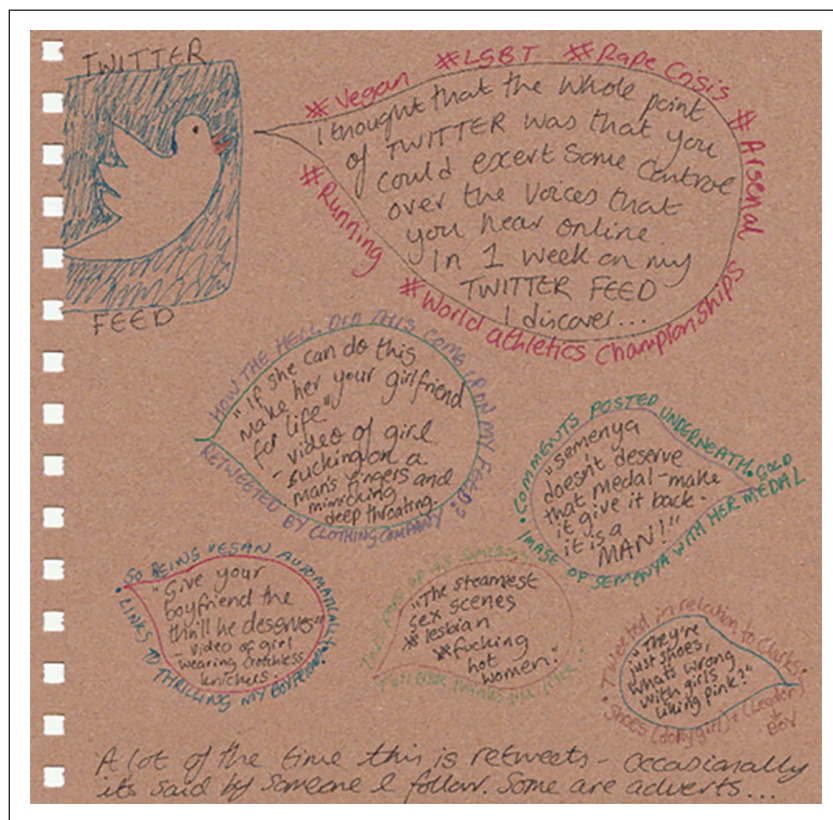 TWITTER
FEED
#Vegan #LGBT #Rape Crisis #Arsenal
#Running
#World athletics Championships
I thought that the whole point
of TWITTER was that you
could excert some control
over the voices that
you hear online.
In 1 week on my
TWITTER FEED
I discover...
HOW THE HELL DID THIS COME UP ON MY FEED?
RETWEETED BY CLOTHING COMPANY
"if she can do this
make her your girlfriend
for life"
- video of girl
sucking on a
man's fingers and
mimicking
deep throating.
• COMMENTS POSTED UNDERNEATH • GOLD
IMAGE OF SEMANYA WITH HER MEDAL
"semenya
doesn't deserve
that medal - make
it give it back.
it is a
MAN!"
• SO BEING VEGAN AUTOMATICALLY
• LINKS TO THRILLING MY BOYFRIEND?
"Give your
boyfriend the
thrill he deserves"
video of girl
wearing crotchless
knickers.
"The steamiest
sex scenes
#lesbian
#fucking
hot
women."
Tweeted in relation to Clarks
• SHOES (dolly girl) + (Leader)
BOY
"They're
just shoes,
whats wrong
with girls
liking pink?"
A lot of the time this is retweets - occasionally
its said by someone I follow. Some are adverts...